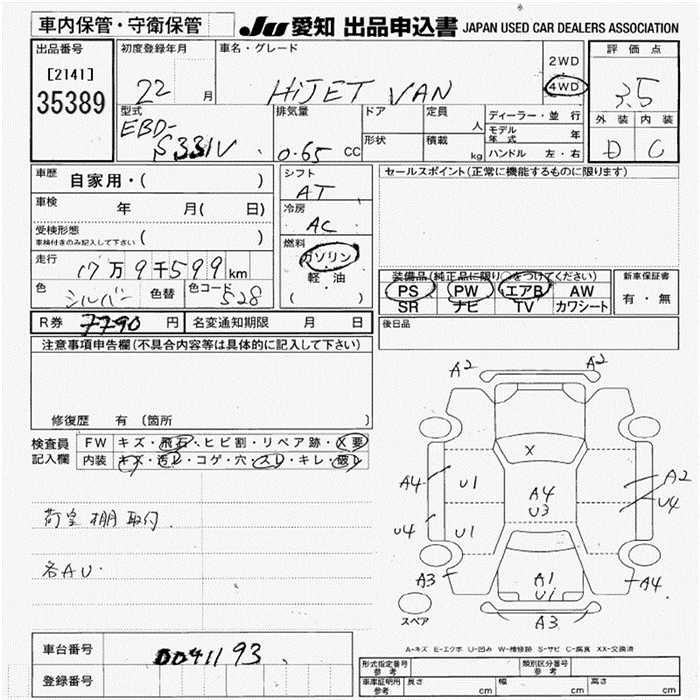 車内保管・守衛保管 JU 愛知 出品申込書 JAPAN USED CAR DEALERS ASSOCIATION
出品番号 初度登録年月 車名・グレード 2WD 評価点
[2141] 22 月 HiJET VAN 4WD 3.5
35389 型式 排気量 ドア 定員 人 ディーラー・並行 外装 内装
EBD- 形状 積載 モデル年式 年 D C
S331V 0.65 CC kg ハンドル 左・右
車歴 自家用・( ) シフト AT セールスポイント(正常に機能するものに限ります)
車検 年 月( 日) 冷房 AC
受検形態 車検付きのみ記入して下さい 燃料 ガソリン
走行 17万9千599km 軽・油 装備品(純正品に限り○をつけてください) 新車保証書
色 シルバー 色替 色コード 528 ( ) PS PW エアB AW 有・無
SR ナビ TV カワシート
R券 7790 円 名変通知期限 月 日 後日品
注意事項申告欄(不具合内容等は具体的に記入して下さい)
修復歴 有 (箇所
検査員 FW キズ・飛石・ヒビ割・リペア跡・X要
記入欄 内装 キズ・汚レ・コゲ・穴・スレ・キレ・破レ
A2 A2
X
A4 U1 A4 A2
U3 U4
U4 U1
A3 A1 A4
U1
A3
スペア
棚取付.
各AU.
A-キズ E-エクボ U-凹み W-補修跡 S-サビ C-腐食 XX-交換済
車台番号 0041193
登録番号
形式指定番号 参考 類別区分番号 参考
車庫証明用 参考 長さ cm 幅 cm 高さ cm